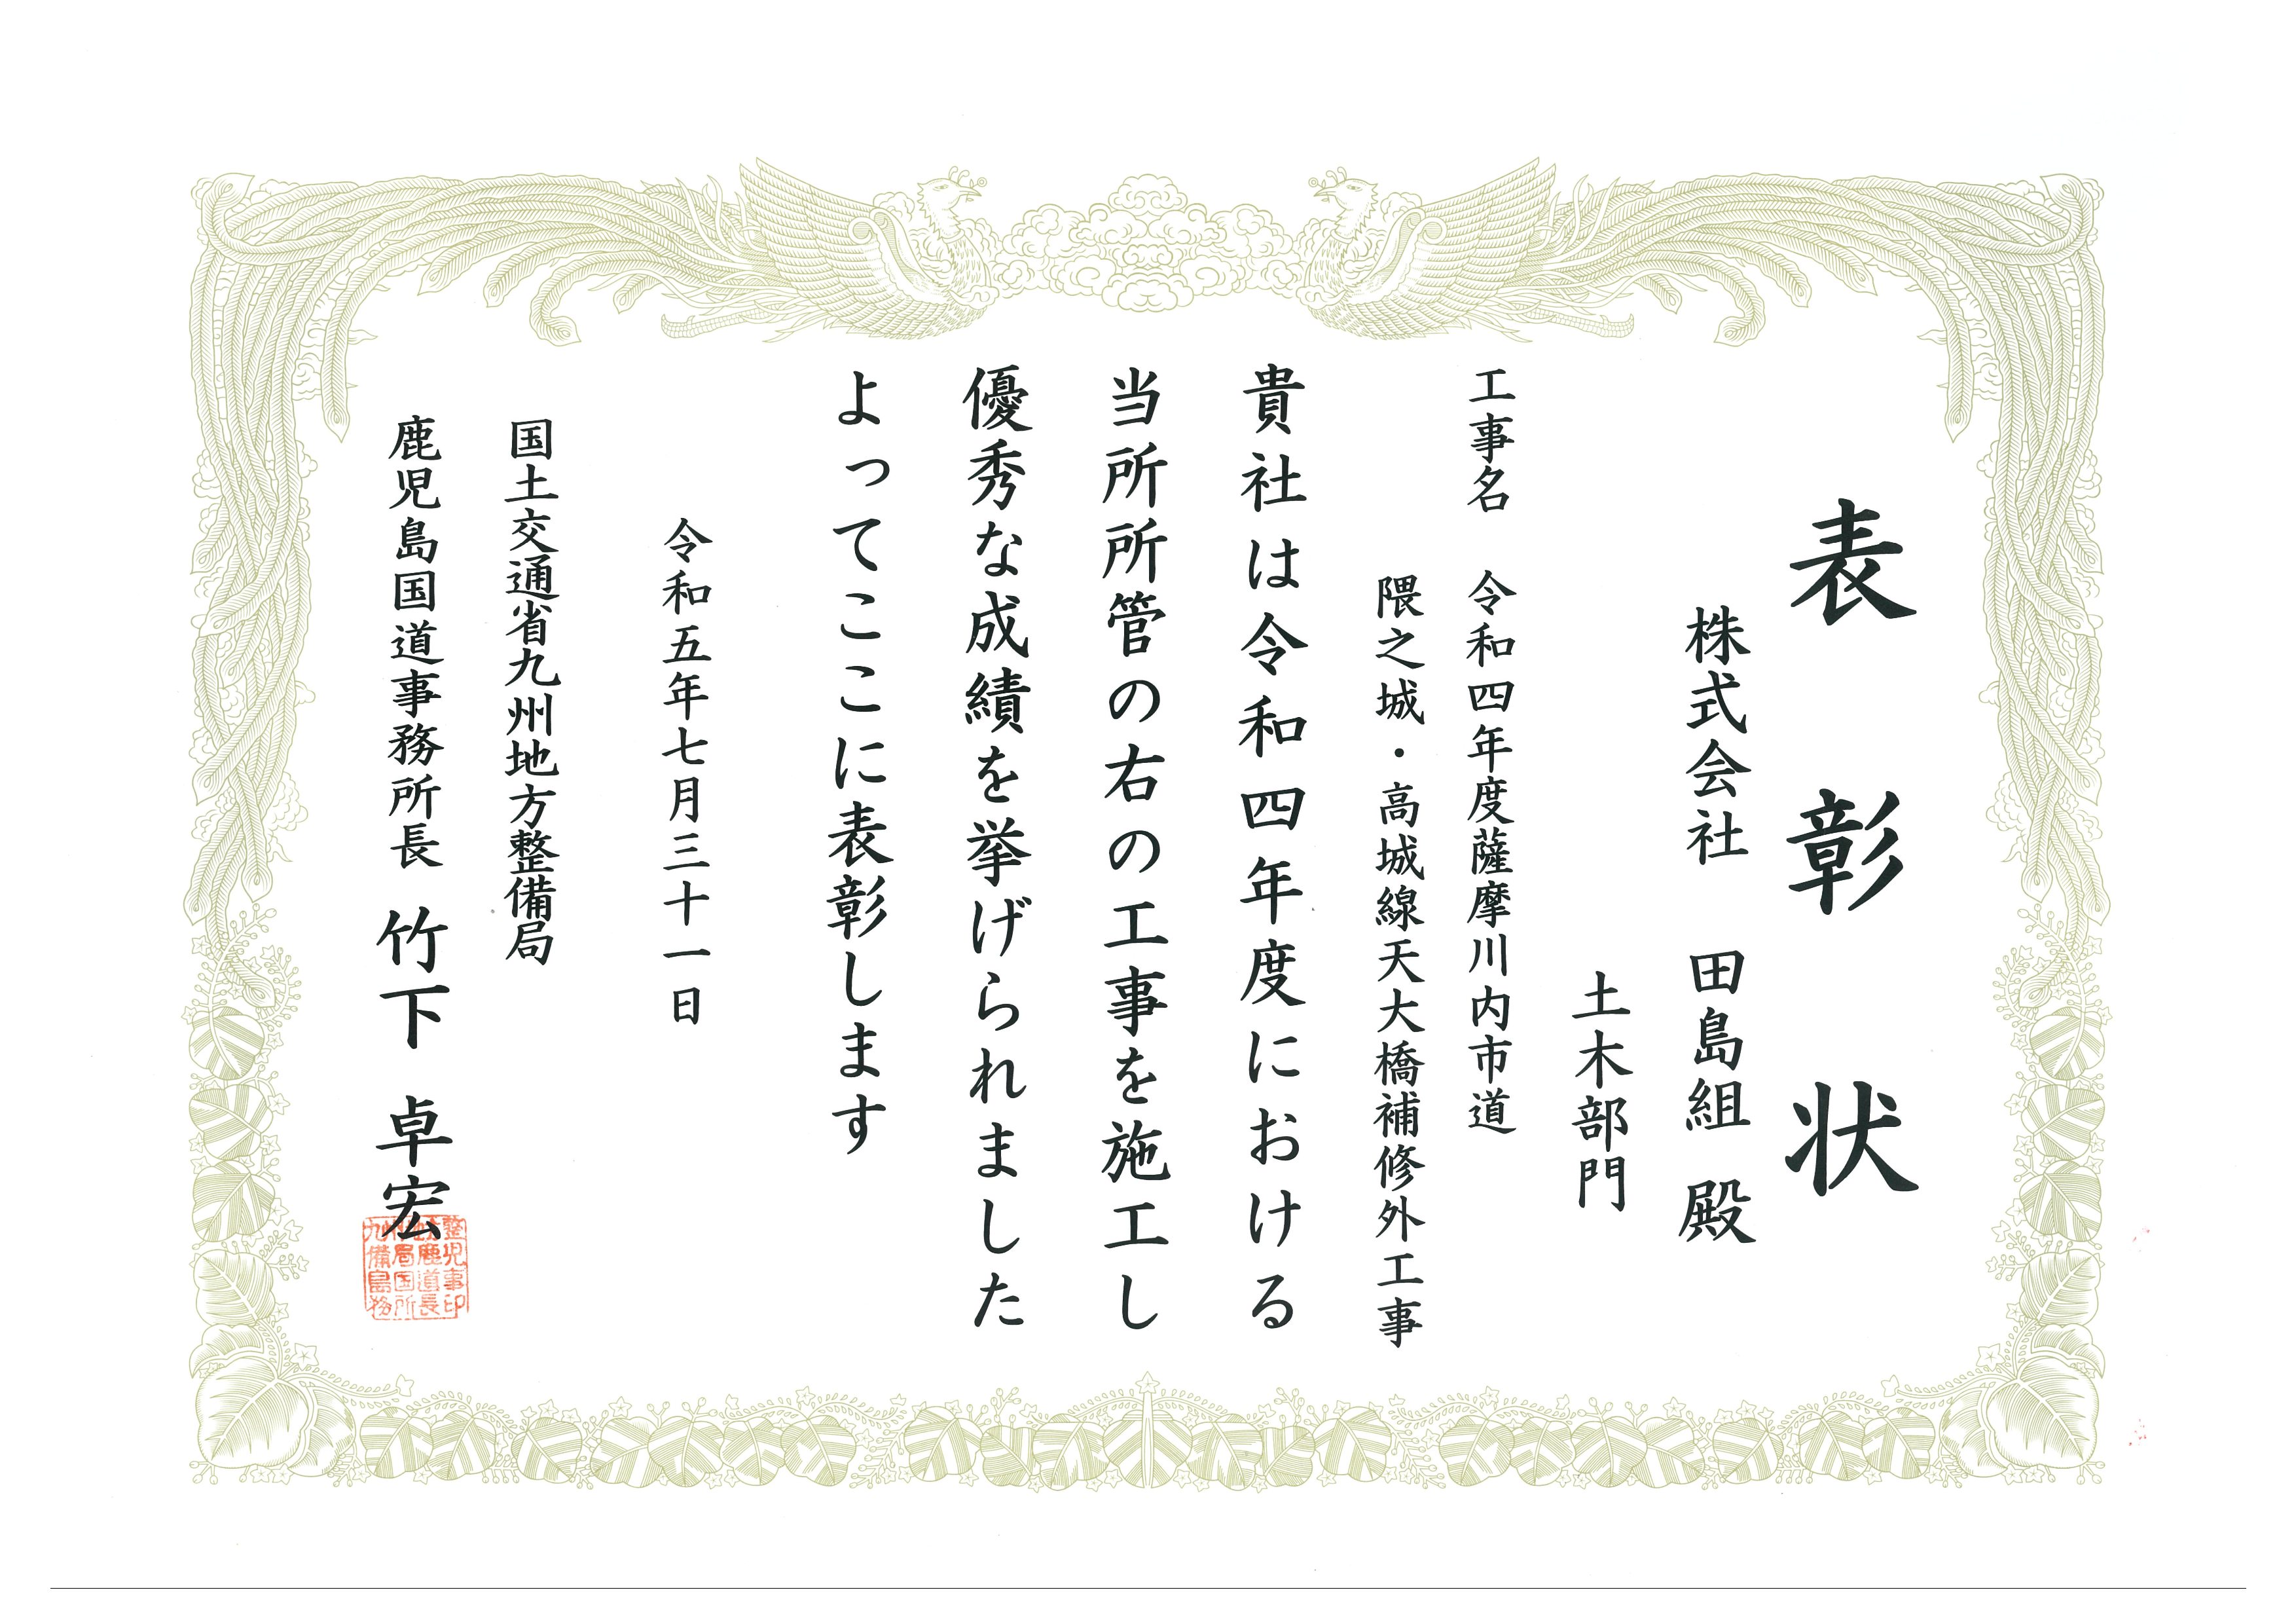 表彰状
株式会社 田島組 殿
土木部門
工事名 令和四年度薩摩川内市道
隈之城・高城線天大橋補修外工事
貴社は令和四年度における
当所所管の右の工事を施工し
優秀な成績を挙げられました
よってここに表彰します
令和五年七月三十一日
国土交通省九州地方整備局
鹿児島国道事務所長 竹下 卓宏